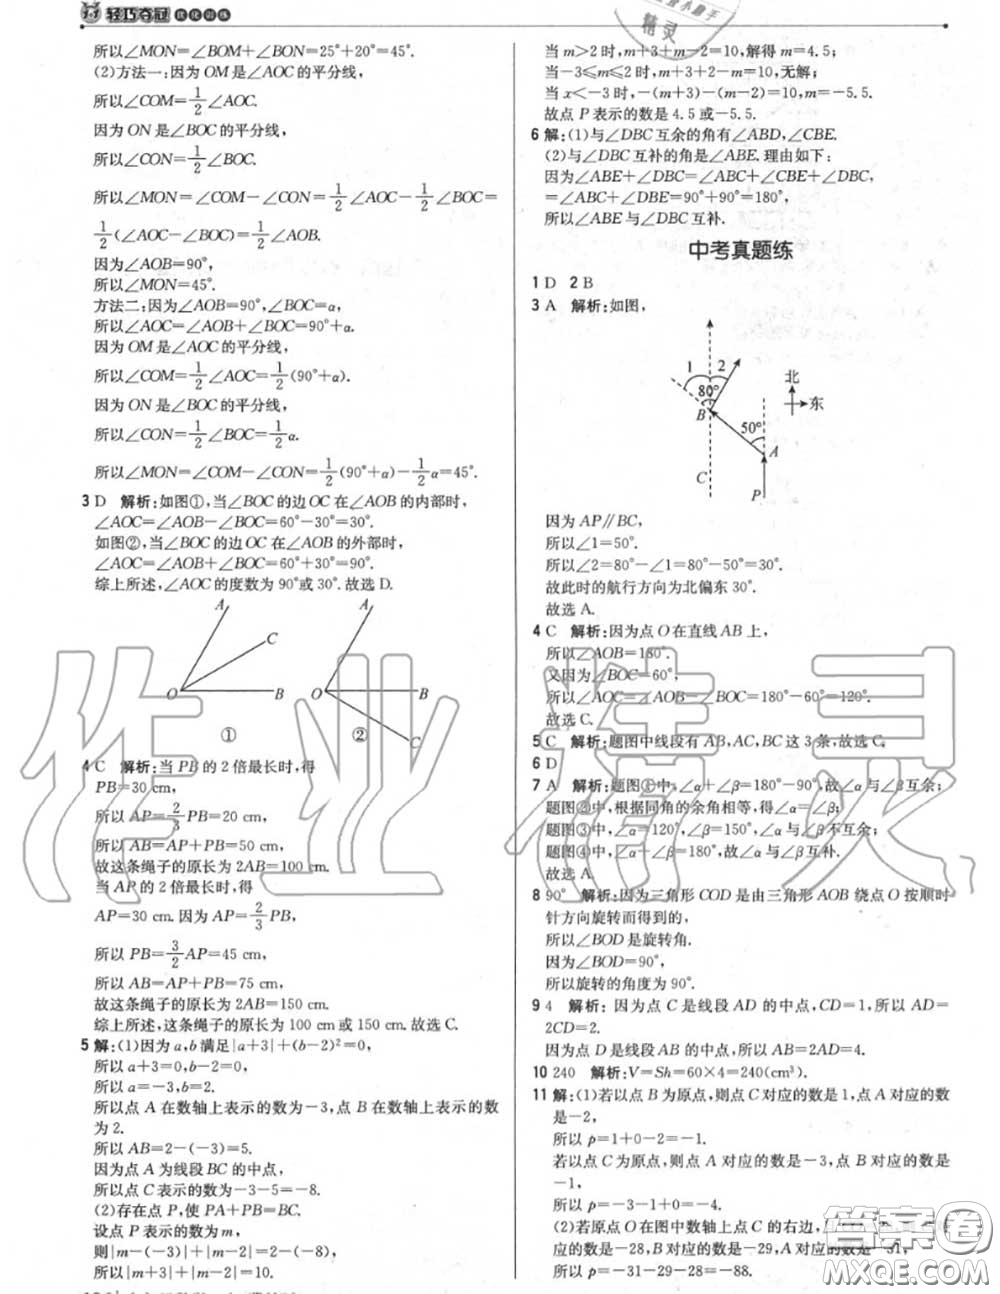 轻巧夺冠 优化训练
所以∠MON=∠BOM+∠BON=25°+20°=45°.
(2)方法一:因为OM是∠AOC的平分线,
所以∠COM=1/2∠AOC.
因为ON是∠BOC的平分线,
所以∠CON=1/2∠BOC.
所以∠MON=∠COM-∠CON=1/2∠AOC-1/2∠BOC=
1/2(∠AOC-∠BOC)=1/2∠AOB.
因为∠AOB=90°,
所以∠MON=45°.
方法二:因为∠AOB=90°,∠BOC=α,
所以∠AOC=∠AOB+∠BOC=90°+α.
因为OM是∠AOC的平分线,
所以∠COM=1/2∠AOC=1/2(90°+α).
因为ON是∠BOC的平分线,
所以∠CON=1/2∠BOC=1/2α.
所以∠MON=∠COM-∠CON=1/2(90°+α)-1/2α=45°.
3 D 解析:如图①,当∠BOC的边OC在∠AOB的内部时,
∠AOC=∠AOB-∠BOC=60°-30°=30°.
如图②,当∠BOC的边OC在∠AOB的外部时,
∠AOC=∠AOB+∠BOC=60°+30°=90°.
综上所述,∠AOC的度数为90°或30°.故选D.
A C O B ①
A O B C ②
4 C 解析:当PB的2倍最长时,得
PB=30 cm,
所以AP=2/3PB=20 cm,
所以AB=AP+PB=50 cm,
故这条绳子的原长为2AB=100 cm.
当AP的2倍最长时,得
AP=30 cm.因为AP=2/3PB,
所以PB=3/2AP=45 cm,
所以AB=AP+PB=75 cm,
故这条绳子的原长为2AB=150 cm.
综上所述,这条绳子的原长为100 cm或150 cm.故选C.
5 解:(1)因为a,b满足|a+3|+(b-2)²=0,
所以a+3=0,b-2=0,
所以a=-3,b=2,
所以点A在数轴上表示的数为-3,点B在数轴上表示的数
为2.
所以AB=2-(-3)=5.
因为点A为线段BC的中点,
所以点C表示的数为-3-5=-8.
(2)存在点P,使PA+PB=BC.
设点P表示的数为m,
则|m-(-3)|+|m-2|=2-(-8),
所以|m+3|+|m-2|=10.
当m>2时,m+3+m-2=10,解得m=4.5;
当-3≤m≤2时,m+3+2-m=10,无解;
当x<-3时,-(m+3)-(m-2)=10,m=-5.5.
故点P表示的数是4.5或-5.5.
6 解:(1)与∠DBC互余的角有∠ABD,∠CBE.
(2)与∠DBC互补的角是∠ABE.理由如下:
因为∠ABE+∠DBC=∠ABC+∠CBE+∠DBC,
=∠ABC+∠DBE=90°+90°=180°,
所以∠ABE与∠DBC互补.
中考真题练
1 D 2 B
3 A 解析:如图,
1 2 80° B 50° A C P 北 东
因为AP∥BC,
所以∠1=50°.
所以∠2=80°-∠1=80°-50°=30°.
故此时的航行方向为北偏东30°.
故选A.
4 C 解析:因为点O在直线AB上,
所以∠AOB=180°.
又因为∠BOC=60°,
所以∠AOC=∠AOB-∠BOC=180°-60°=120°.
故选C.
5 C 解析:题图中线段有AB,AC,BC这3条,故选C.
6 D
7 A 解析:题图①中,∠α+∠β=180°-90°,故∠α与∠β互余;
题图②中,根据同角的余角相等,得∠α=∠β;
题图③中,∠α=120°,∠β=150°,故∠α与∠β不互余;
题图④中,∠α+∠β=180°,故∠α与∠β互补.
故选A.
8 90° 解析:因为三角形COD是由三角形AOB绕点O按顺时
针方向旋转而得到的,
所以∠BOD是旋转角.
因为∠BOD=90°,
所以旋转的角度为90°.
9 4 解析:因为点C是线段AD的中点,CD=1,所以AD=
2CD=2.
因为点D是线段AB的中点,所以AB=2AD=4.
10 240 解析:V=Sh=60×4=240(cm³).
11 解:(1)若以点B为原点,则点C对应的数是1,点A对应的数
是-2,
所以p=1+0-2=-1.
若以点C为原点,则点A对应的数是-3,点B对应的数是
-1,
所以p=-3-1+0=-4.
(2)若原点O在图中数轴上点C的右边,
应的数是-28,点B对应的数是-29,点A对应的数是-31,
所以p=-31-29-28=-88.
作业精灵
答案圈
MXQE.COM